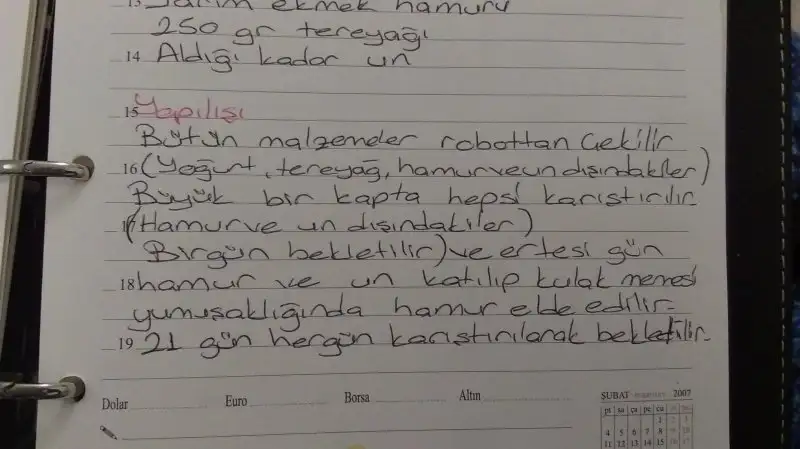 13 Yarım ekmek hamuru
250 gr tereyağı
14 Aldığı kadar un
15 Yapılışı
Bütün malzemeler robottan çekilir
16 (Yoğurt, tereyağ, hamur ve un dışındakiler)
Büyük bir kapta hepsi karıştırılır
17 (Hamur ve un dışındakiler)
Birgün bekletilir) ve ertesi gün
18 hamur ve un katılıp kulak memesi
yumuşaklığında hamur elde edilir.
19 21 gün hergün karıştırılarak bekletilir.
Dolar Euro Borsa Altın
ŞUBAT 2007
pt sa ça pe cu
1 2 3
4 5 6 7 8 9 10
11 12 13 14 15 16 17